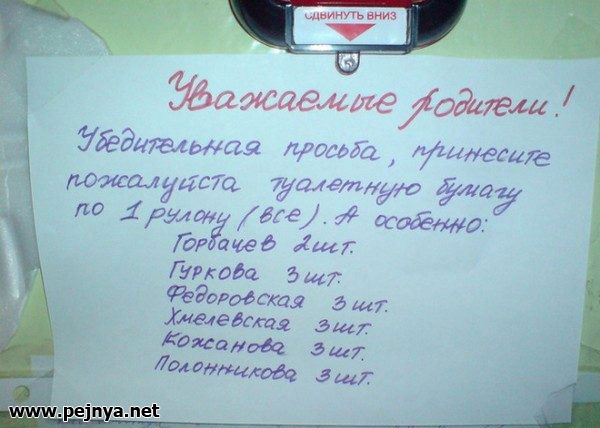 СДВИНУТЬ ВНИЗ
Уважаемые родители!
Убедительная просьба, принесите
пожалуйста туалетную бумагу
по 1 рулону (все). А особенно:
Горбачев 2 шт.
Гуркова 3 шт.
Федоровская 3 шт.
Хмелевская 3 шт.
Кожанова 3 шт.
Полонникова 3 шт.
www.pejnya.net